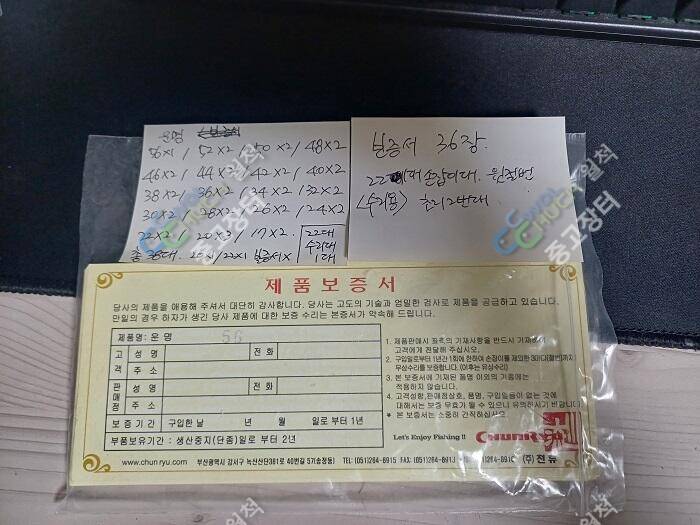 운명 보증서
56X1 / 52X2 / 50X2 / 48X2
46X2 / 44X2 / 42X2 / 40X2
38X2 / 36X2 / 34X2 / 32X2
30X2 / 28X2 / 26X2 / 24X2
22X2 / 20X3 / 17X2.
22대
수리대
1대
총 38대. 20X1/22X1 보증서X
보증서 36장.
22 손잡이대. 원절번
<수리용> 초리2번대.
제품보증서
당사의 제품을 애용해 주셔서 대단히 감사합니다. 당사는 고도의 기술과 엄밀한 검사로 제품을 공급하고 있습니다.
만일의 경우 하자가 생긴 당사 제품에 대한 보증 수리는 본증서가 약속해 드립니다.
제품명: 운 명 56
고객 성명 전화
주소
판매점 성명 전화
주소
보증기간 구입한 날 년 월 일로 부터 1년
부품보유기간 : 생산중지(단종)일로 부터 2년
1. 제품판매시 좌측의 기재사항을 반드시 기재하
고객에게 전달해 주십시오.
2. 구입일로부터 1년간 1회에 한하여 손잡이를 제외한 3마디(절번)까지
무상수리를 보증합니다. (이후는 유상수리)
3. 본 보증서에 기재된 품명 이외의 기종에는
적용하지 않습니다.
4. 고객성함, 판매점상호, 품명, 구입일등이 없는 것에
대해서는 보증 무효가 될 수 있으니 유의하시기 바랍니다.
* 본 보증서는 소중히 간직하십시오.
Let's Enjoy Fishing !! CHUNRYU
www.chunryu.com 부산광역시 강서구 녹산산단381로 40번길 57(송정동) TEL: (051)264-8915 FAX: (051)264-891 (주)천류
CWOL
CHUCK
월척
중고장터